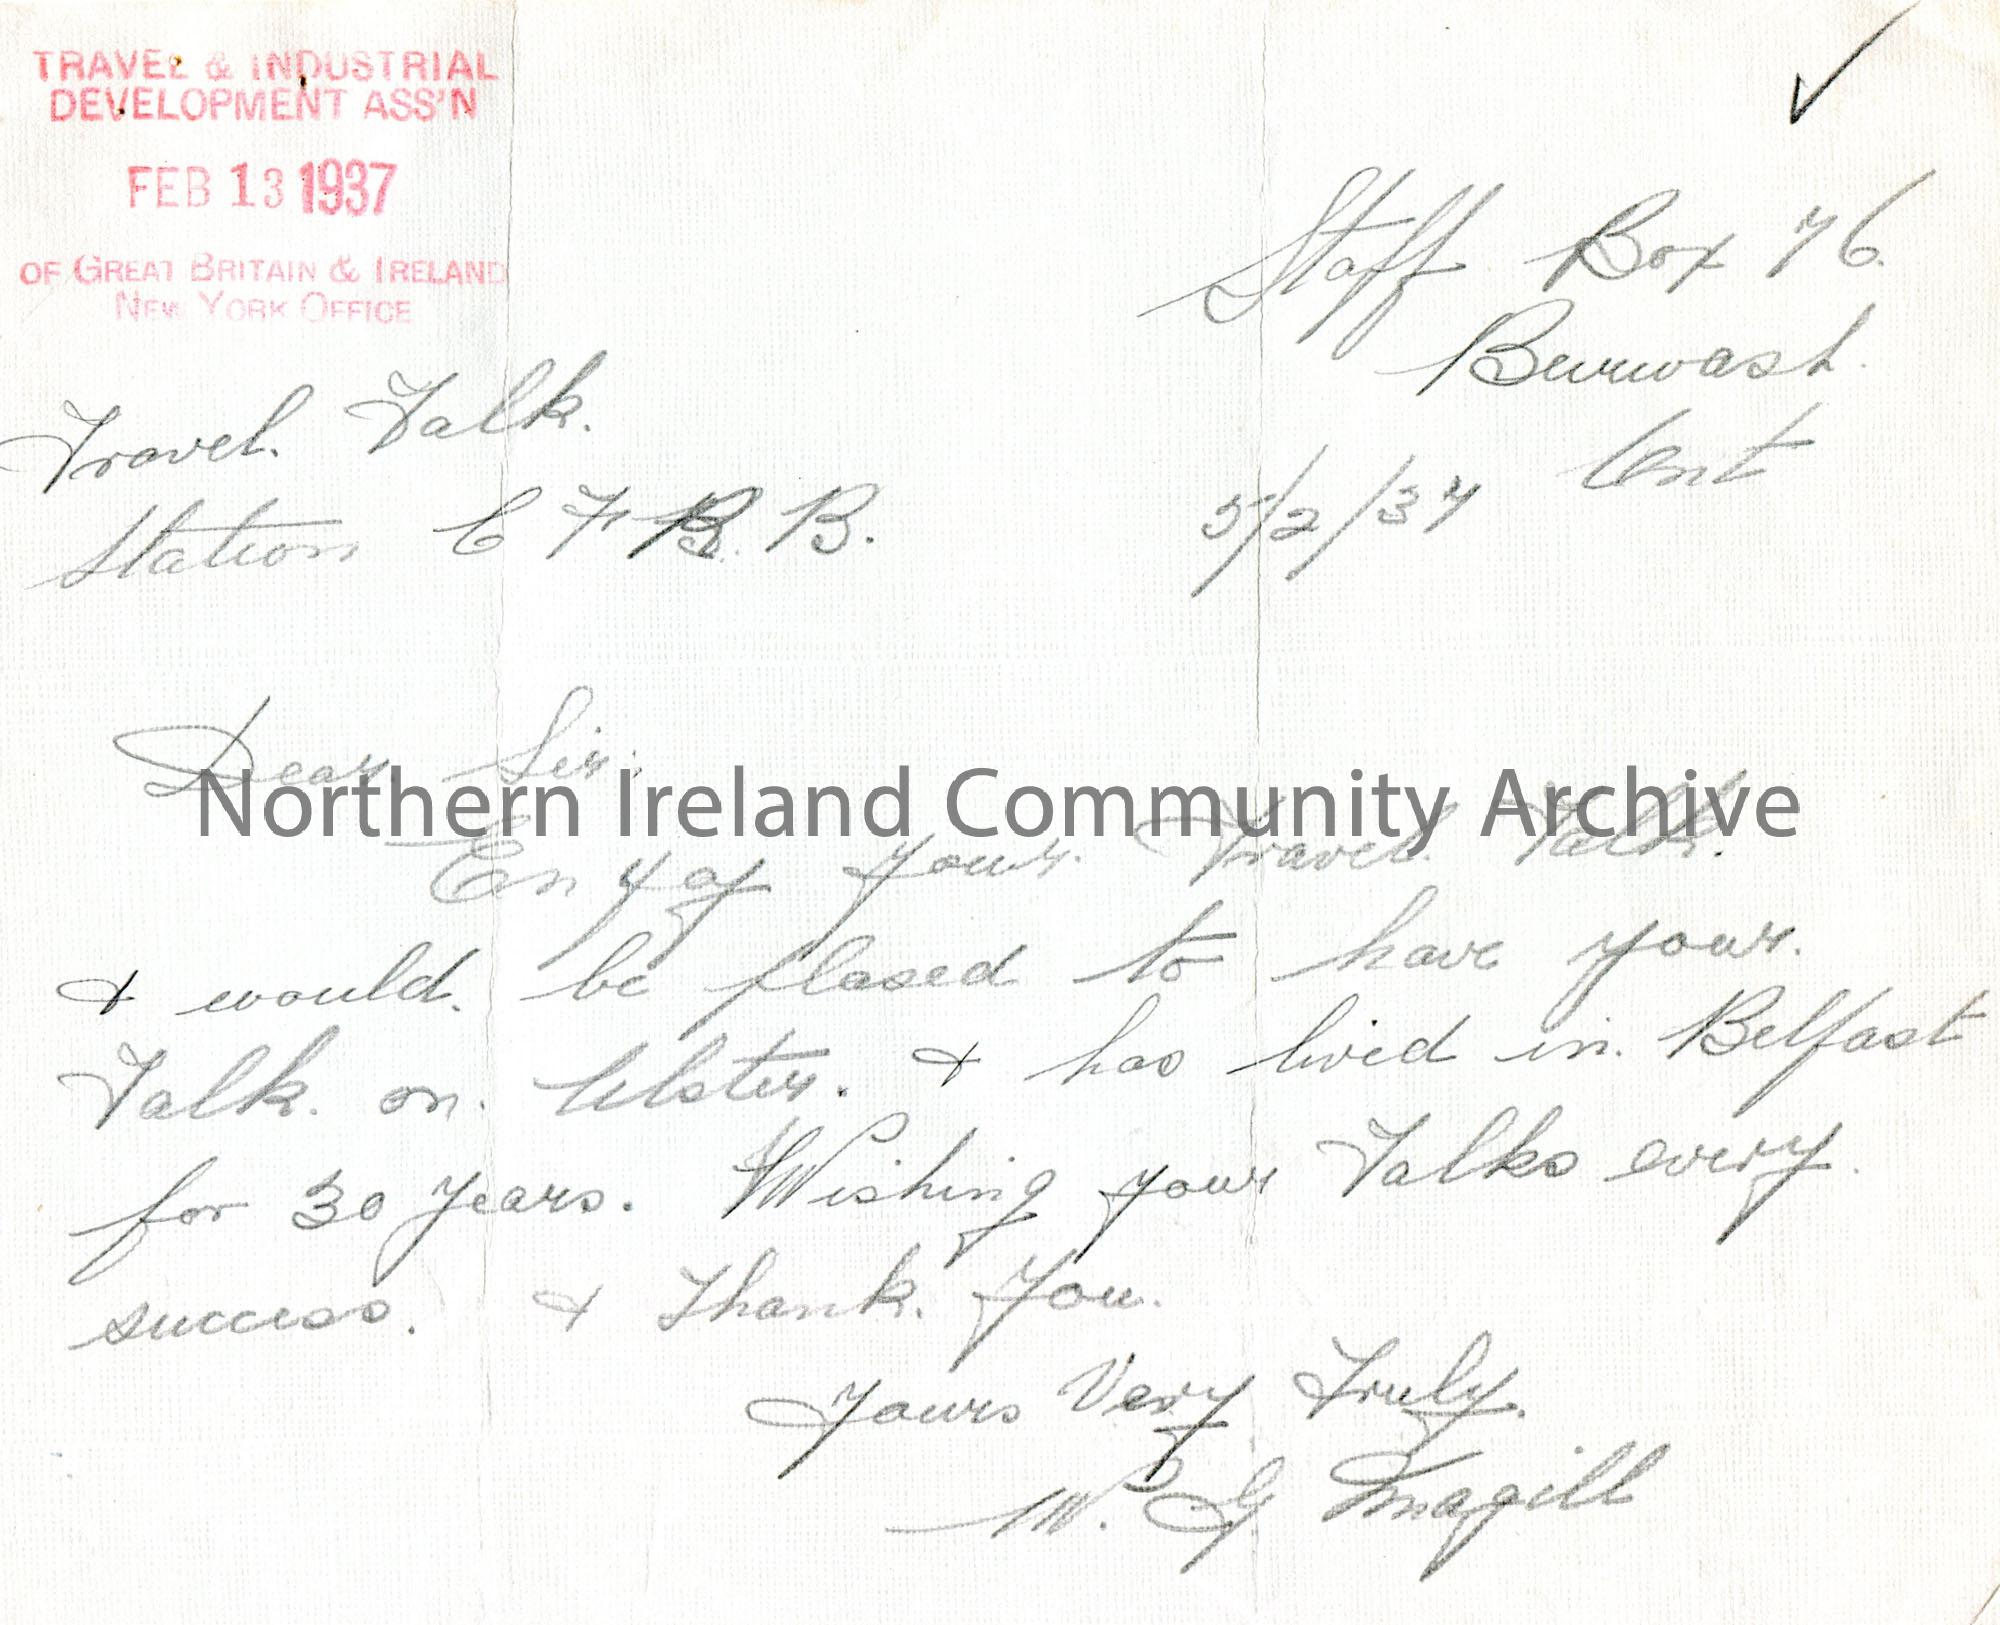 TRAVEL & INDUSTRIAL
DEVELOPMENT ASS'N
FEB 13 1937
OF GREAT BRITAIN & IRELAND
NEW YORK OFFICE
Staff Box 76.
Burwash.
Ont
5/2/37
Travel. Talk.
Station C F R B.
Dear Sir:
Northern Ireland Community Archive
Enyoy your Travel. Talk.
& would. be plased to have your.
Talk. on. Ulster. & has lived in. Belfast
for 30 years. Wishing your Talks every.
success. & Thank. You.
Yours Very Truly.
W. G Magill